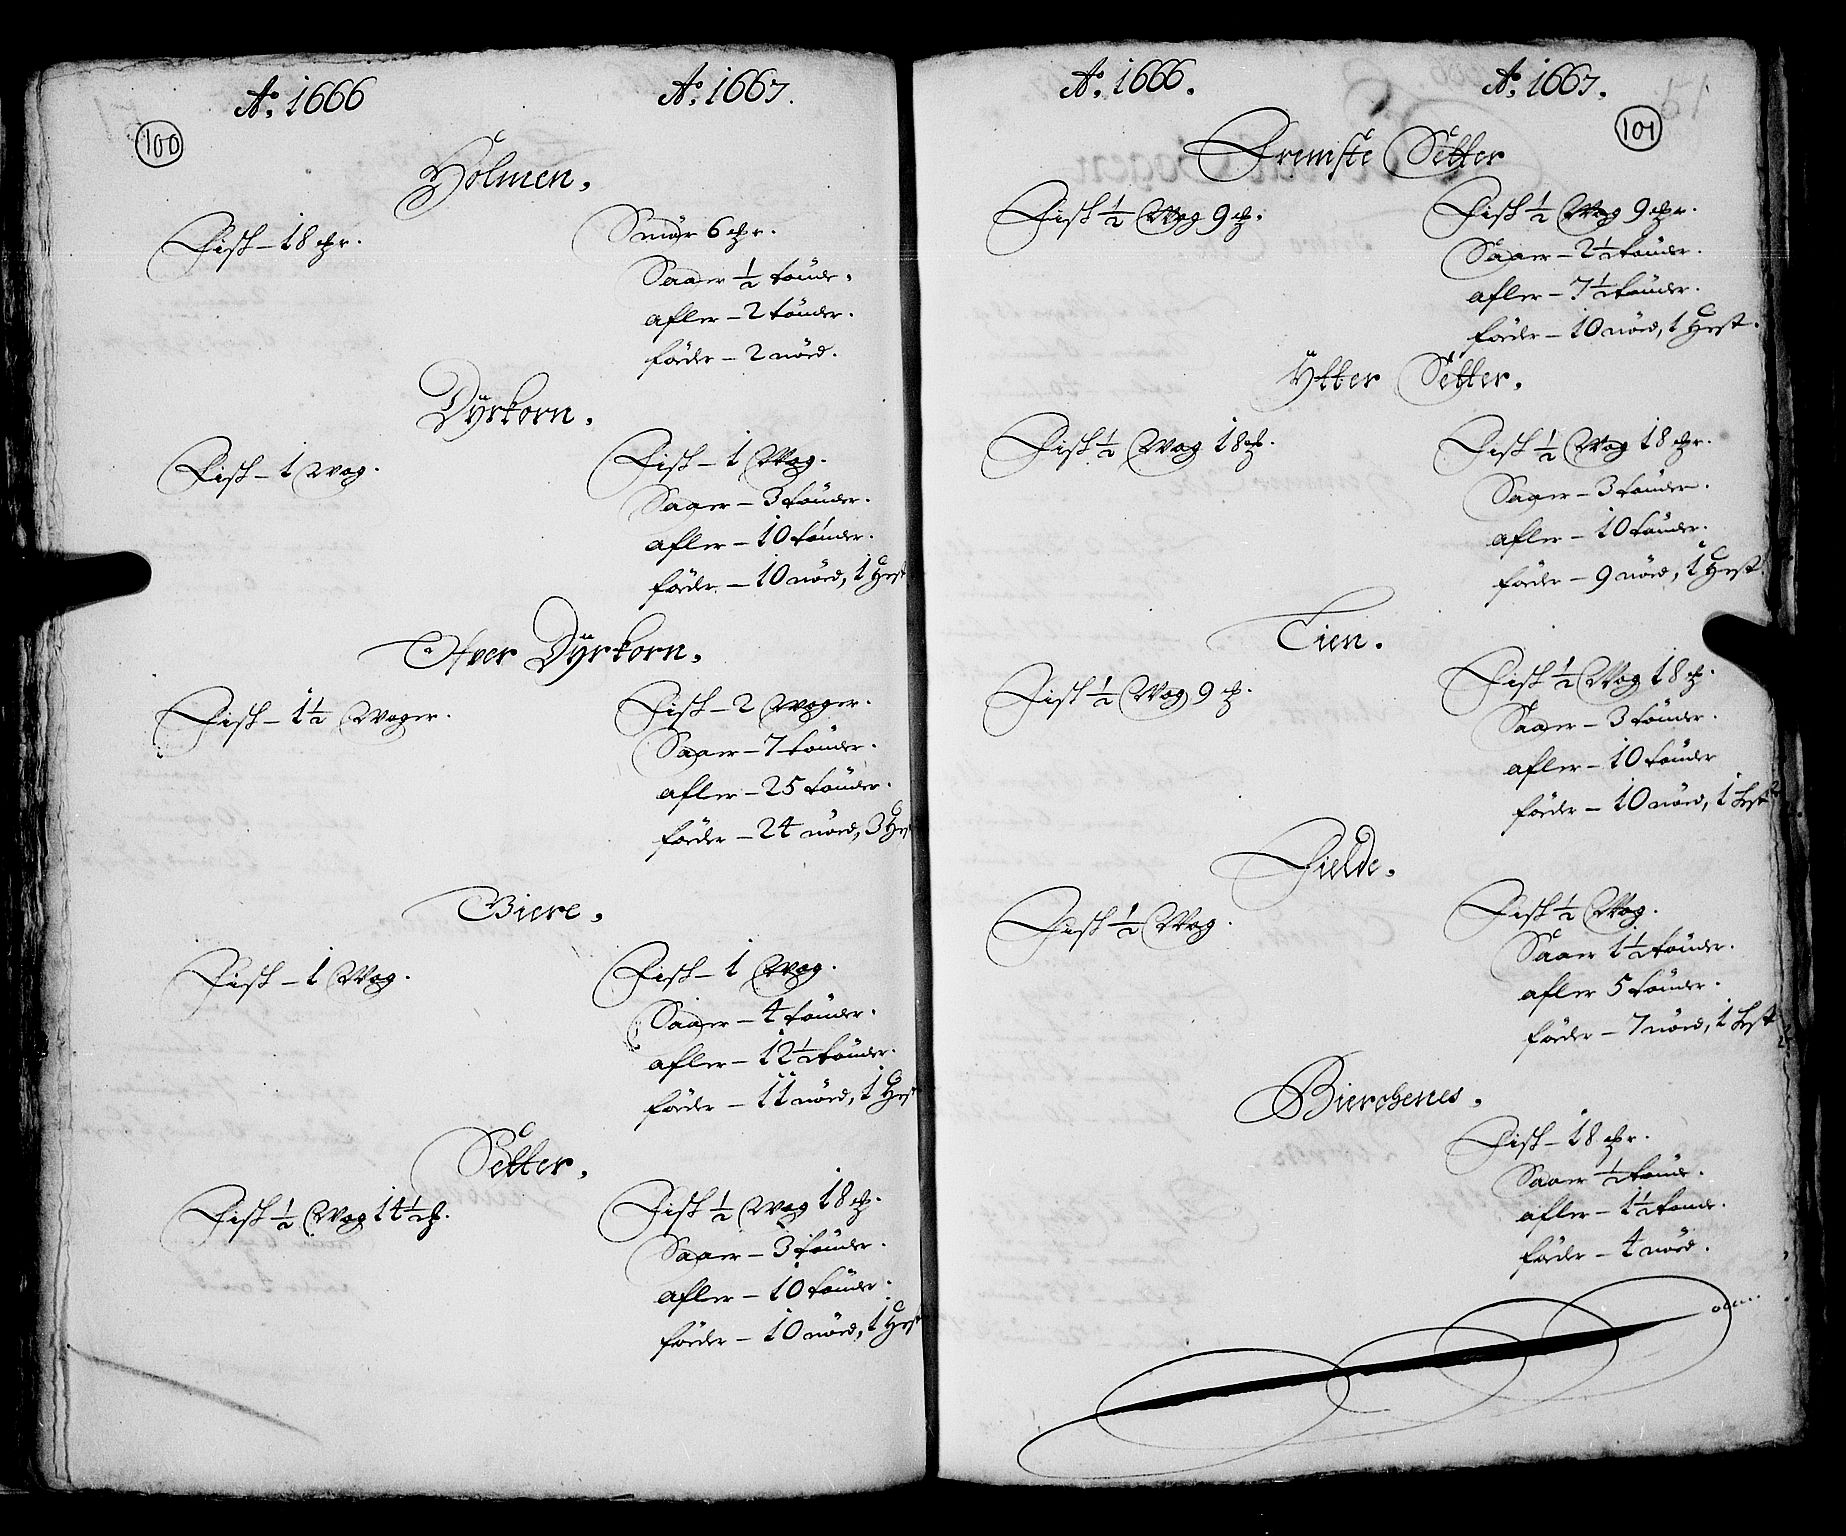 Ao. 1666
Ao. 1667.
100
Holmen.
Fisk – 18 ℔r.
Smör 6 ℔r.
Saaer ½ tönde.
afler – 2 tönder.
föder – 2 nöed.
Dÿrkorn.
Fisk – 1 wog.
Fisk – 1 Wog.
Saaer – 3 tönder.
afler – 10 tönder.
föder – 10 nöed, 1 Hest
Ofver Dÿrkorn.
Fisk – 1½ Woger.
Fisk – 2 Woger.
Saaer – 7 tönder.
afler – 25 tönder.
föder – 24 nöed, 3 Hest
Biere.
Fisk – 1 Wog.
Fisk – 1 Wog.
Saaer – 4 tönder.
afler – 12½ tönder.
föder – 11 nöed, 1 Hest
Setter.
Fisk ½ Wog 14½ ℔.
Fisk ½ Wog 18 ℔.
Saaer – 3 tönder.
afler – 10 tönder.
föder – 10 nöed, 1 Hest
Ao. 1666.
Ao. 1667.
101
Fremste Setter
Fisk ½ Wog 9 ℔.
Fisk ½ Wog 9 ℔r.
Saaer – 2½ tönder.
afler – 7½ tönder.
föder – 10 nöed, 1 Hest.
Ÿtter Setter.
Fisk ½ Wog 18 ℔.
Fisk ½ Wog 18 ℔r.
Saaer – 3 tönder.
afler – 10 tönder.
föder – 9 nöed, 1 Hest.
Tien.
Fisk ½ Wog 9 ℔.
Fisk ½ Wog 18 ℔.
Saaer – 3 tönder.
afler – 10 tönder
föder – 10 nöed, 1 Hest
Fielde.
Fisk ½ Wog.
Fisk ½ Wog.
Saaer 1½ tönder.
afler 5 tönder.
föder – 7 nöed, 1 Hest
Bierchenes.
Fisk – 18 ℔r.
Saaer ½ tönde.
afler – 1½ tonde.
föder – 4 nöed.